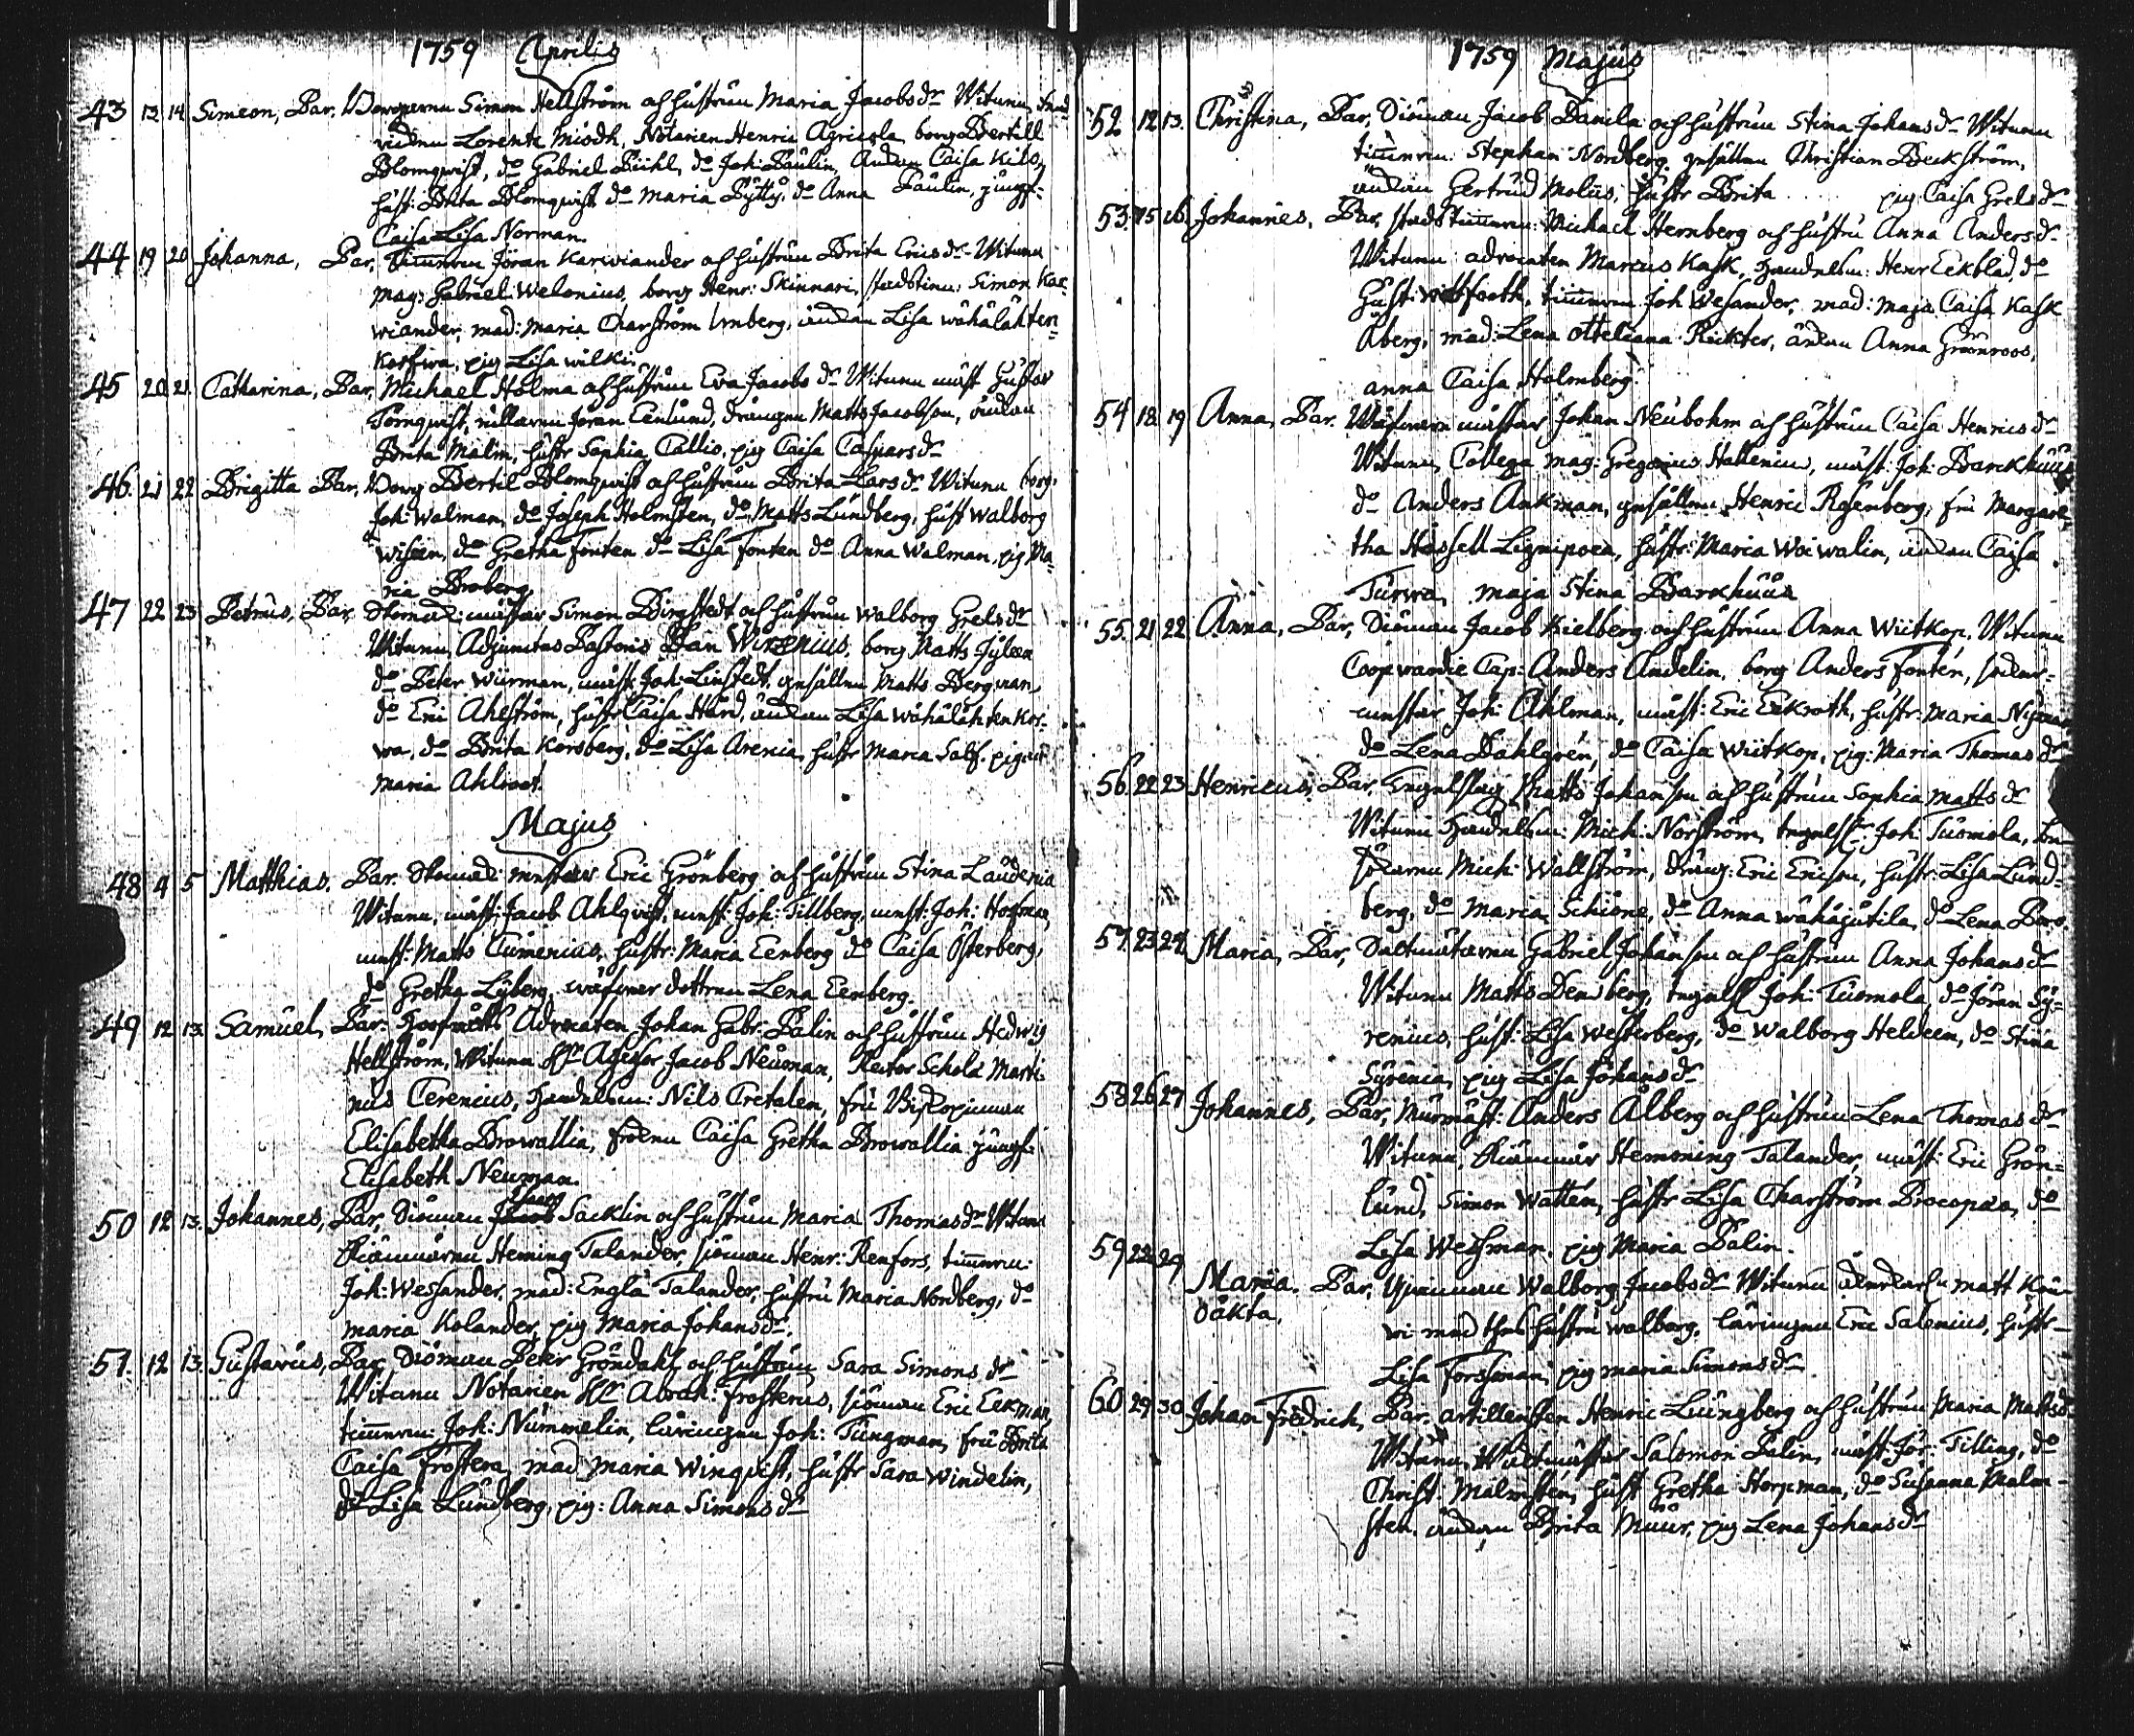 1759 Aprilis
43 13 14 Simeon, Par. Simon Hellström och hustrun Maria Jacobsdr Witnen
Lorentz Miödh, Notarien Henric Agricola borg Bertill
Blomqvist, do Gabriel Bühl, do Joh: Paulin, Caisa Kilo,
hust: Brita Blomqvist do Maria do Anna Paulin, jungf:
Caisa Lisa Norman.
44 19 20 Johanna, Par, Jöran Karwiander och hustrun Brita Ericsdr Witnen
mag: Gabriel Welonius, borg Henr: Skinnari, Simon Kar-
wiander, mad: Maria Tharström änkan Lisa wähäläkten-
pig Lisa wilki.
45 20 21 Catharina, Par, Michael Holma och hustrun Eva Jacobs dr Witnen mäst Gustav
Törnqvist, Jöran Eenlund, drängen Matts Jacobson, änkan
Brita Malm, hustr Sophia Callio, pig Caisa Caspars dr
46. 21 22 Brigitta Par, Borg Bertil Blomqvist och hustrun Brita Lars dr Witnen borg.
Joh: Walman, do Joseph Holmsten, do Matts Lundberg, hust Walborg
do Gretha Fonten do Lisa Fonten do Anna Walman, pig Ma-
ria Broberg
47 22 23 Petrus, Par, mästar Simon Bergstedt och hustrun Walborg Grels dr
Witnen Adjunctus Pastoris Dan Wirzenius, borg Matts
do Peter Wiirman, mäst: Joh: Linstedt, gesällen Matts Bergman
do Eric Ahlström, hustr Caisa Hård, änkan Lisa wähäläkten
do Brita Korsberg, do Lisa Arenia, hustr Maria pigan
Maria Ahlroot.
Majus
48 4 5 Matthias. Par. mästar Eric Grönberg och hustrun Stina Laudenia
Witnen, mäst: Jacob Ahlqvist, mäst: Joh: Tillberg, mäst: Joh: Hofman,
mäst: Matts Tumenius, hustr: Maria Eenberg do Caisa Österberg,
do Gretha Lyberg, dottren Lena Eenberg.
49 12 13 Samuel, Par: Hoofrätts Advocaten Johan Gabr: Palin och hustrun Hedwig
Hellström, Witnen Hr Assessor Jacob Neuman, Rector Schola Marti-
nus Terenius, handelsm: Nils Tretalen, fru Biskopinnan
Elisabetha Browallia, Caisa Gretha Browallia jungf:
Elisabeth Neuman.
50 12 13. Johannes, Par, Siöman Jacob Isaac Sacklin och hustrun Maria Thomas dr Witnen
Heming Talander, siöman Henr: Renfors, timmerm:
Joh: Wessander, mad: Engla Talander, hustru Maria Nordberg, do
Maria Kolander, pig Maria Johans dr.
51. 12 13. Gustavus, Par, Siöman Peter Gröndahl och hustrun Sara Simons dr
Witnen Notarien Hr Abrah: Frosterus, siöman Eric Eekman,
timmerm: Joh: Nummelin, läringen Joh: Tungman, fru Brita
Caisa Frostera, mad Maria Winqvist, hustr Sara Windelin,
do Lisa Lundberg, pig: Anna Simons dr
1759 Majus
52 12 13. Christina, Par, Siöman Jacob Danila och hustrun Stina Johans dr Witnen
timmerm: Stephan Nordberg, gesällen Christian Beckström,
änkan Gertrud Molis, hustr Brita pig Caisa Grels dr
53. 15 16. Johannes, Par, Michael Hernberg och hustru Anna Anders dr
Witnen advocaten Marcus Kask, handelsm: Henr Eekblad, do
Gust: Witfooth, timmerm Joh Wesander, mad: Maja Caisa Kask
Åberg, mad: Lena Otteliana Rickter, änkan Anna Grönroos,
anna Caisa Holmberg
54 18 19 Anna, Par. mästar Johan Neubohm och hustrun Caisa Henrics dr
Witnen, Collega mag: Gregorius Hallenius, mäst: Joh: Barckhuus
do Anders Ankman, gesällen Henric Regenberg, fru Margare-
tha Hassell Lignipoea, hustr: Maria Woiwalin, änkan Caisa
Turwa, Maja Stina Barckhuus
55. 21 22 Anna, Par, Siöman Jacob Kielberg och hustrun Anna Wiitkop. Witnen
Coopvardie Cap: Anders Andelin, borg Anders Fontén,
mästar Joh: Ahlman, mäst: Eric Eekroth, hustr: Maria Nyman
do Lena Dahlgrén, do Caisa Wiitkop, pig: Maria Thomas dr
56. 22 23 Henricus, Par, Matts Johanson och hustrun Sophia Matts dr
Witnen Handelsm: Mich: Norström, Joh: Tuomola,
Mich: Wallström, dräng: Eric Ericson, hustr: Lisa Lund-
berg, do Maria Schiöne, do Anna wähäjutila, do Lena
57. 23 24 Maria, Par, Gabriel Johanson och hustrun Anna Johans dr
Witnen Matts Denberg, Joh: Tuomola, do Jöran Sy-
renius, hust: Lisa Westerberg, do Walborg Heldeen, do Stina
Syrenia, pig Lisa Johans dr
58 26 27 Johannes, Par, Murmäst: Anders Ålberg och hustrun Lena Thomas dr
Witnen, Hemming Talander, mäst: Eric Grön-
lund, Simon Watten, hustr Lisa Tharström Procopæa, do
Lisa Wessman, pig Maria Palin.
59 28 29 Maria. Par, Walborg Jacobs dr Witnen Matt
oäkta. hustru Walborg, läringen Eric Salenius, hustr
Lisa Forssman, pig Maria Simons dr
60 29 30 Johan Fredrich, Par. artilleristen Henric Liungberg och hustrun Maria Matts dr
Witnen, Salomon Palin, mäst: Jör: Tilling, do
Christ: Malmsten, hust Gretha Horpman, do Susanna Malm-
sten, änkan Brita Muur, pig Lena Johans dr